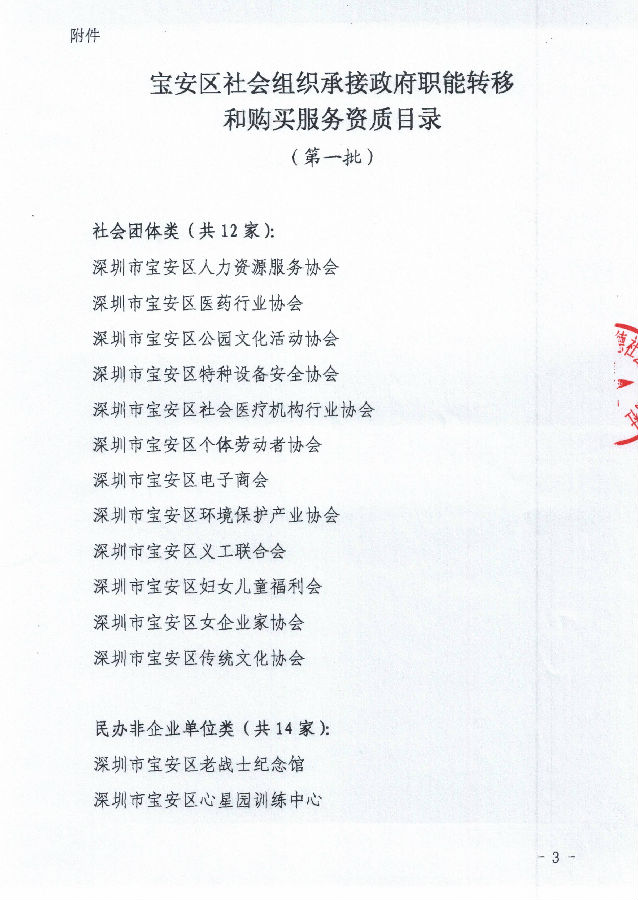 附件
宝安区社会组织承接政府职能转移
和购买服务资质目录
（第一批）
社会团体类（共12家）：
深圳市宝安区人力资源服务协会
深圳市宝安区医药行业协会
深圳市宝安区公园文化活动协会
深圳市宝安区特种设备安全协会
深圳市宝安区社会医疗机构行业协会
深圳市宝安区个体劳动者协会
深圳市宝安区电子商会
深圳市宝安区环境保护产业协会
深圳市宝安区义工联合会
深圳市宝安区妇女儿童福利会
深圳市宝安区女企业家协会
深圳市宝安区传统文化协会
民办非企业单位类（共14家）：
深圳市宝安区老战士纪念馆
深圳市宝安区心星园训练中心
- 3 -